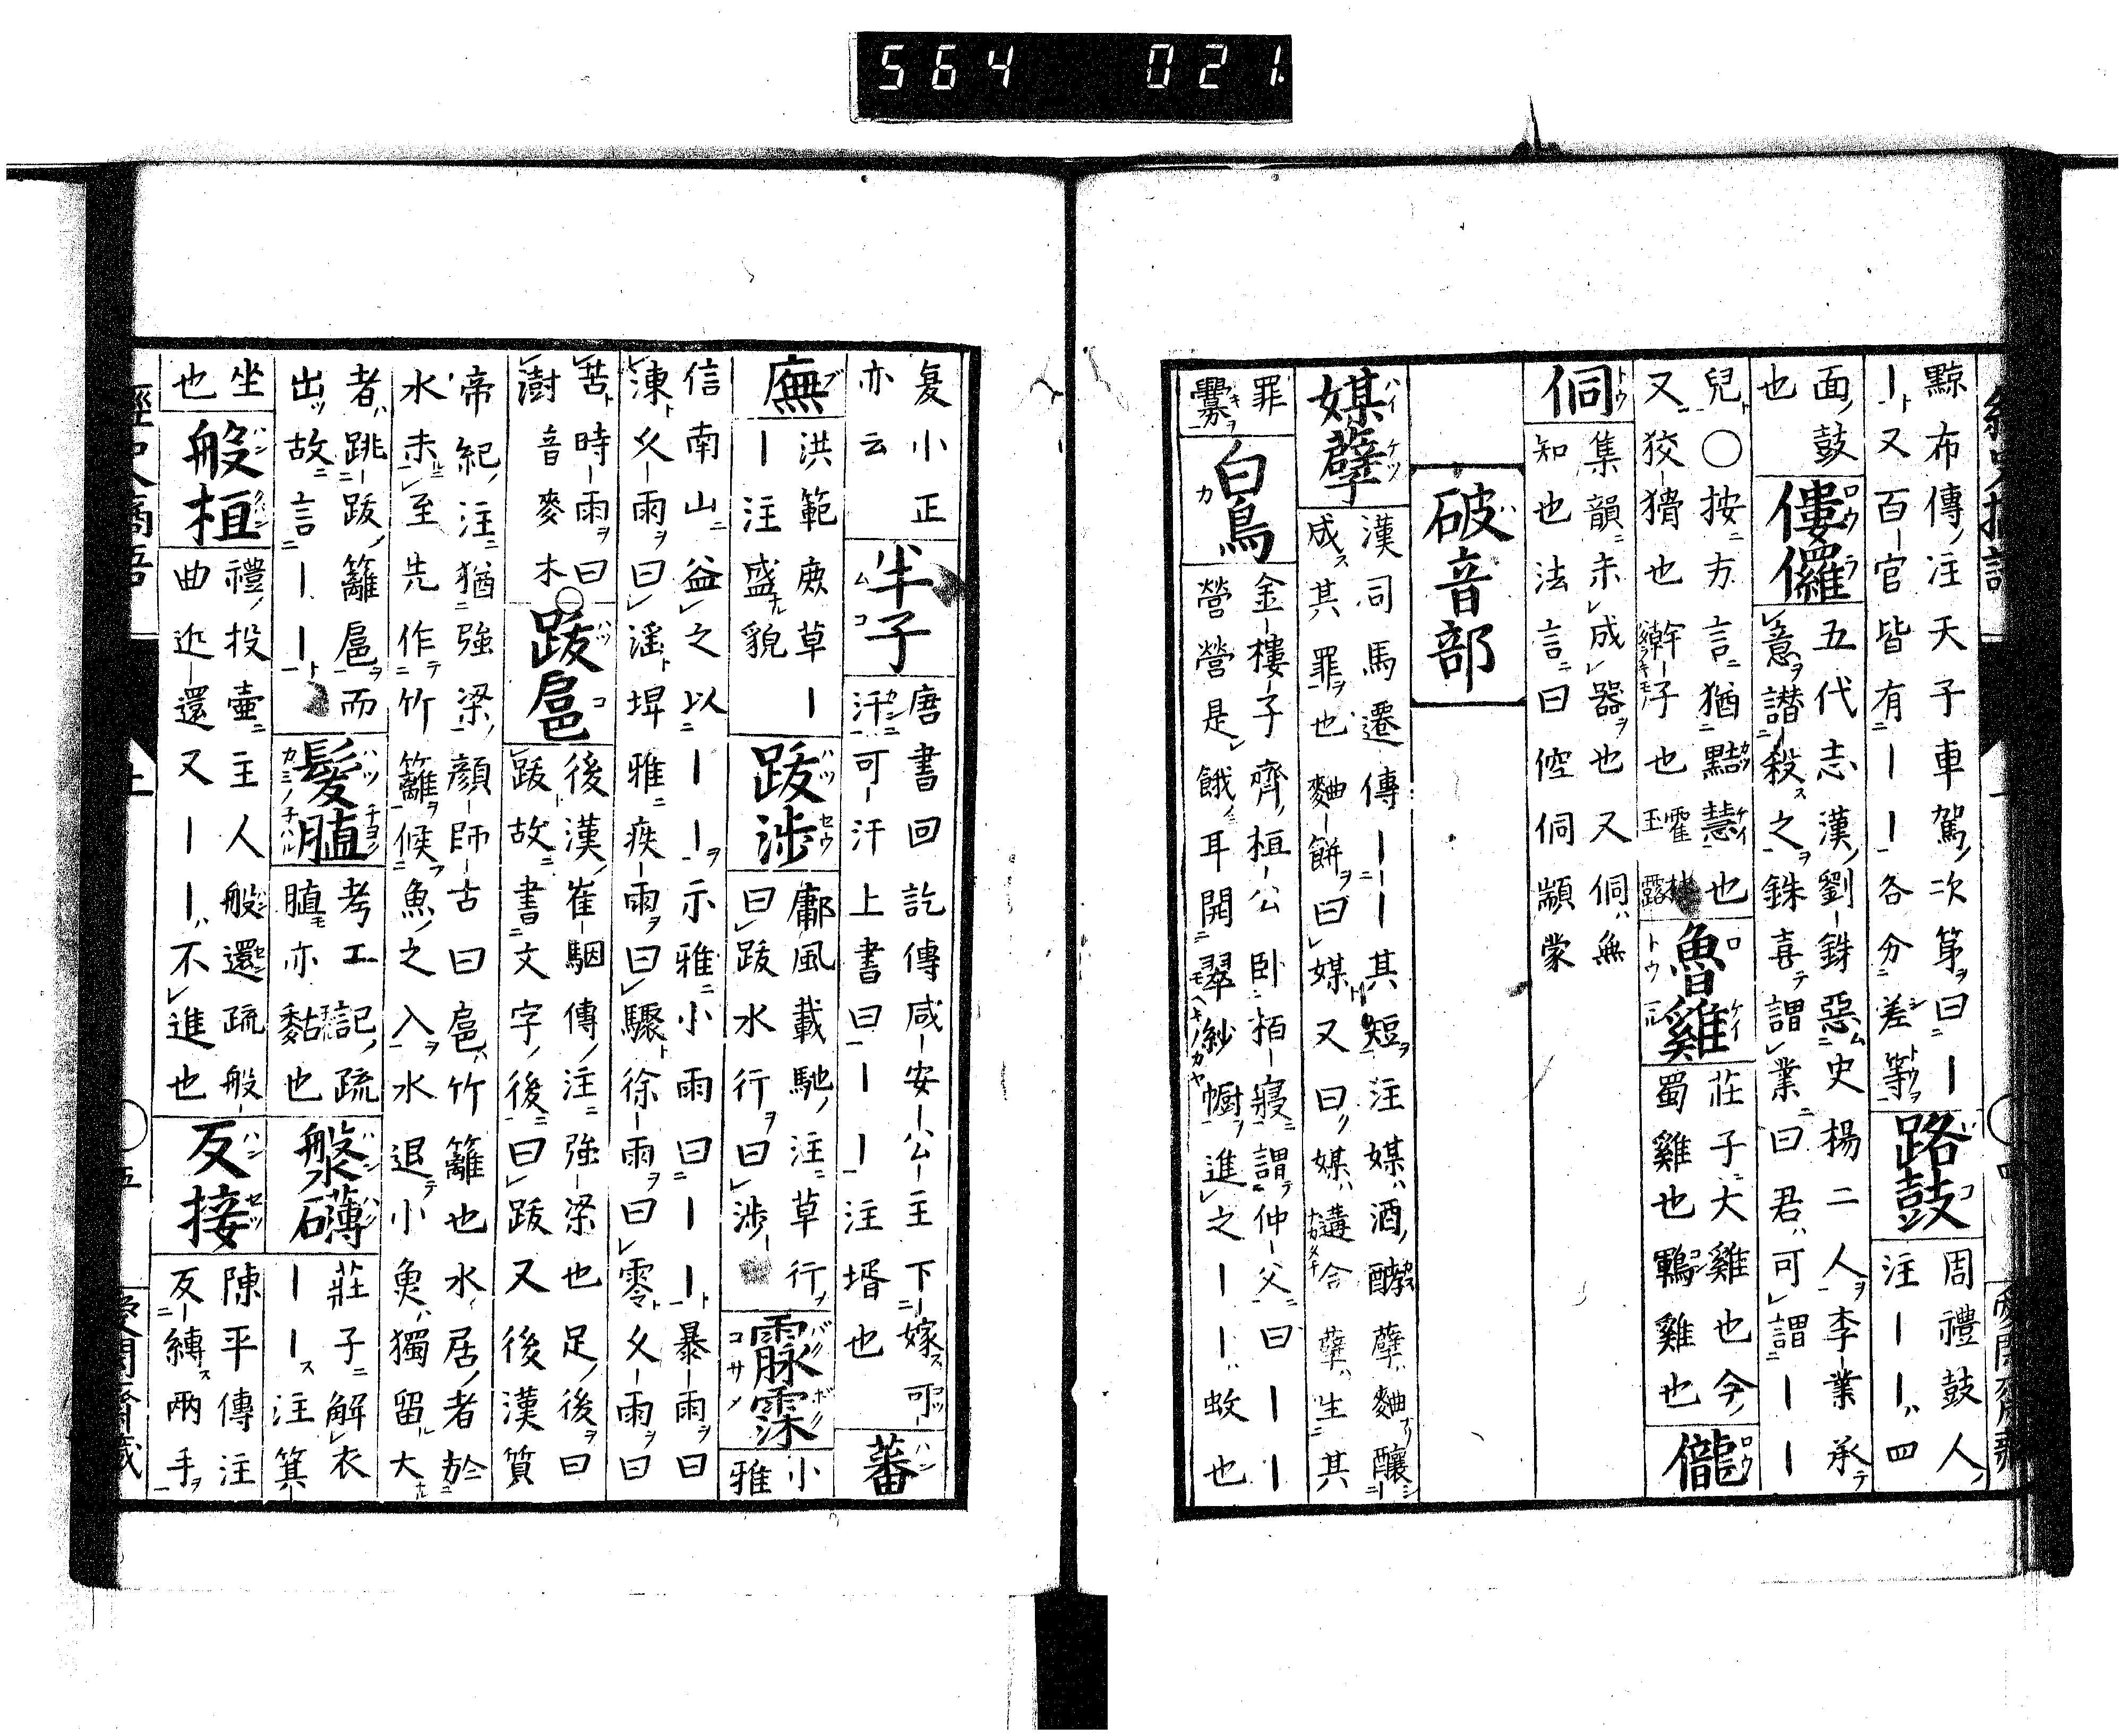 564 021
黥布傳注天子車駕次第曰｜
｜又百官皆有｜｜各分差等
路鼓
周禮鼓人
注｜｜四
面鼓
也
僂儸
五代志漢劉銖惡史楊二人李業承
意譖殺之銖喜謂業曰君可謂｜｜
兒〇按方言猶黠慧也
又狡猾也
魯雞
莊子大雞也今
蜀雞也鶤雞也
儱
侗
集韻未成器也又侗無
知也法言曰倥侗顓蒙
破音部
媒孽
漢司馬遷傳｜｜其短注媒酒酵孽麴釀
成其罪也麯餅曰媒又曰媒遘合孽生其
罪
釁
白鳥
金樓子齊桓公臥栢寢謂仲父曰｜｜
營營是餓耳開翠紗幮進之｜｜蚊也
夏小正
亦云
半子
唐書回訖傳咸安公主下嫁可
汗可汗上書曰｜｜注壻也
蕃
廡
洪範庶草｜
｜注盛貌
跋涉
鄘風載馳注草行
曰跋水行曰涉
霢霂
小
雅
信南山益之以｜｜示雅小雨曰｜｜暴雨曰
涷久雨曰淫埤雅疾雨曰驟徐雨曰零久雨曰
苦時雨曰
澍音麥木
跋扈
後漢崔駰傳注強梁也足後曰
跋故書文字後曰跋又後漢質
帝紀注猶強梁顏師古曰扈竹籬也水居者於
水未至先作竹籬候魚之入水退小魚獨留大
者跳跋籬扈而
出故言｜｜
髮䐈
考工記疏
䐈亦黏也
槃礴
莊子解衣
｜｜注箕
坐
也
般桓
禮投壷主人般還疏般
曲辵還又｜｜不進也
反接
陳平傳注
反縛兩手